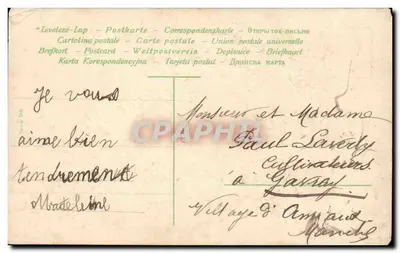 Levelező-Lap - Postkarte - Correspondenzkarte - Открытое письмо
Cartolina postale - Carte postale - Union postale universelle
Brefkort - Postcard - Weltpostverein - Dopisnice - Briefkaart
Karta Korespondencyjna - Tarjeta postal - Дописна карта
Je vous
aime bien
tendrement
Madeleine
Monsieur et Madame
Paul Laverdy
Cultivateurs
à Gavray
Village d'
Manche
CPARAMA